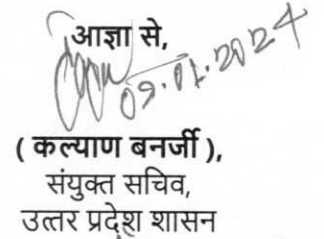 आज्ञा से,
09.01.2024
( कल्याण बनर्जी ),
संयुक्त सचिव,
उत्तर प्रदेश शासन